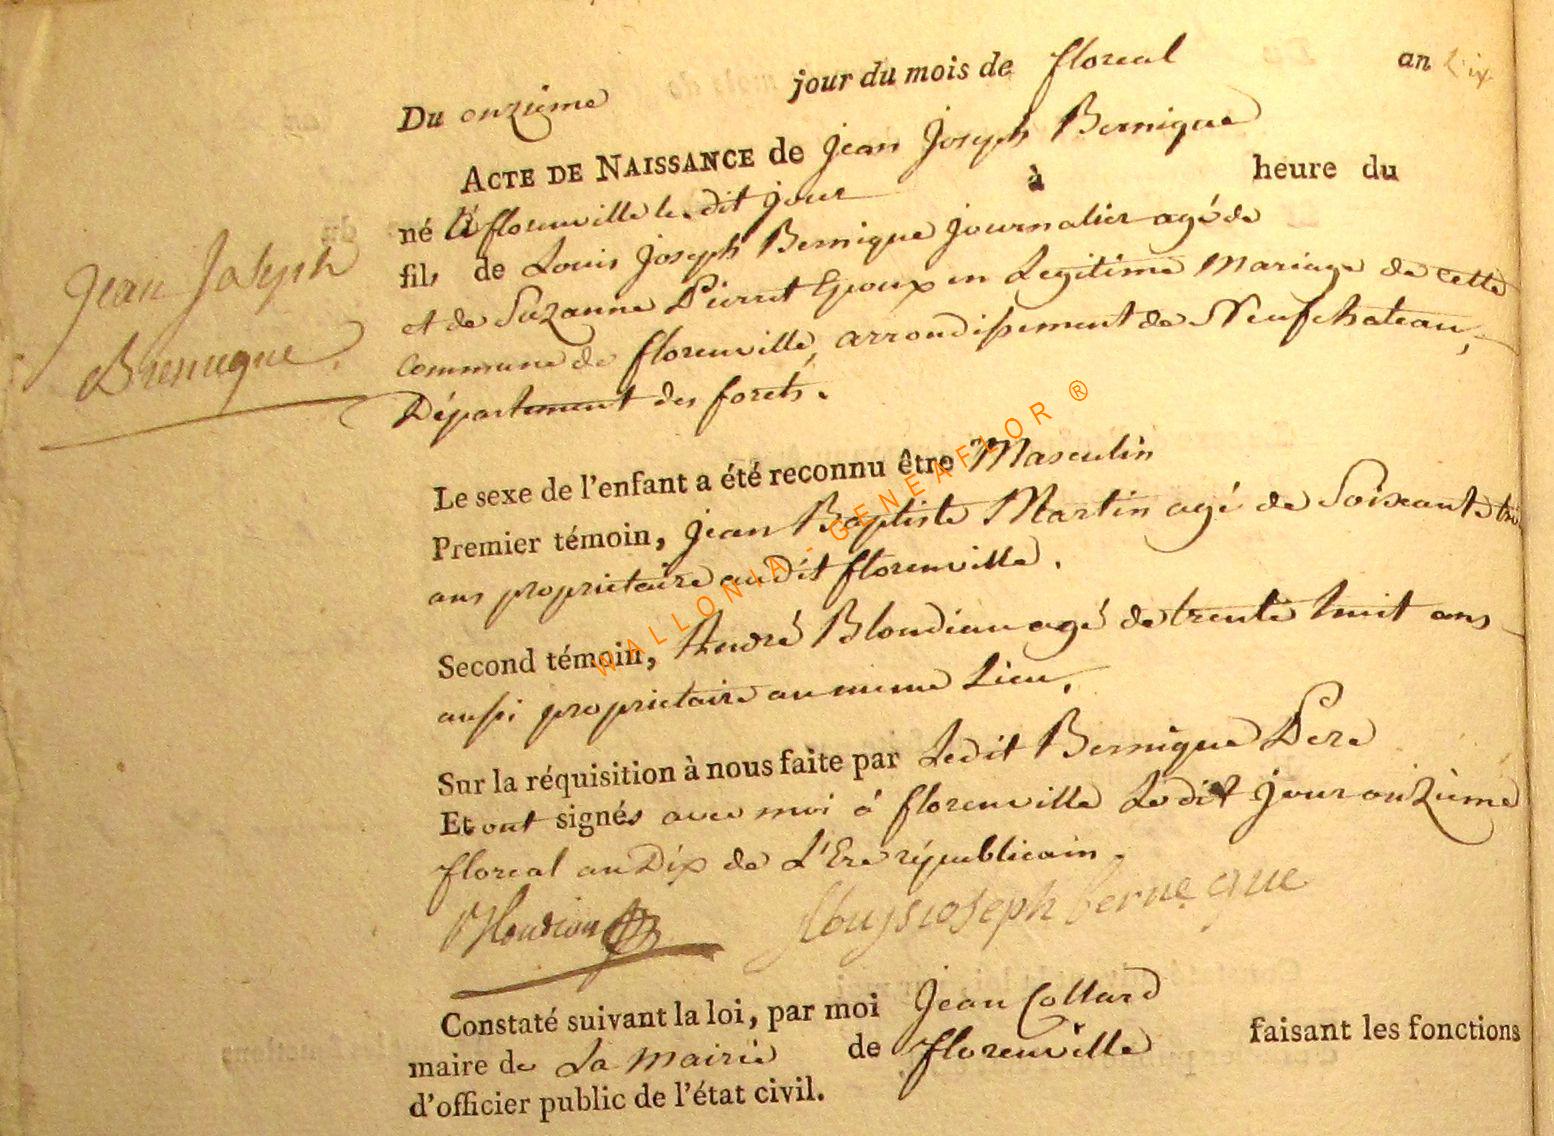 Du onzieme jour du mois de floreal an Dix
ACTE DE NAISSANCE de Jean Joseph Bernique
né à florenville le dit jour à heure du
fils de Louis Joseph Bernique journalier agé de
et de Suzanne Pierret Epoux en Legitime Mariage de cette
commune de florenville, arrondissement de Neufchateau,
Département des forets.
Jean Joseph
Bernique
Le sexe de l'enfant a été reconnu être Masculin
Premier témoin, Jean Baptiste Martin agé de Soixante
ans proprietaire audit florenville.
Second témoin, André Blondiau agé de trente huit ans
aussi proprietaire au meme Lieu.
Sur la réquisition à nous faite par Ledit Bernique Pere
Et ont signés avec moi à florenville Ledit jour onzieme
floreal an Dix de L'Ere républicain.
Blondiau louys ioseph berneque
Constaté suivant la loi, par moi Jean Collard
maire de La Mairie de florenville faisant les fonctions
d'officier public de l'état civil.
WALLONIA - GENEAFLOR ®